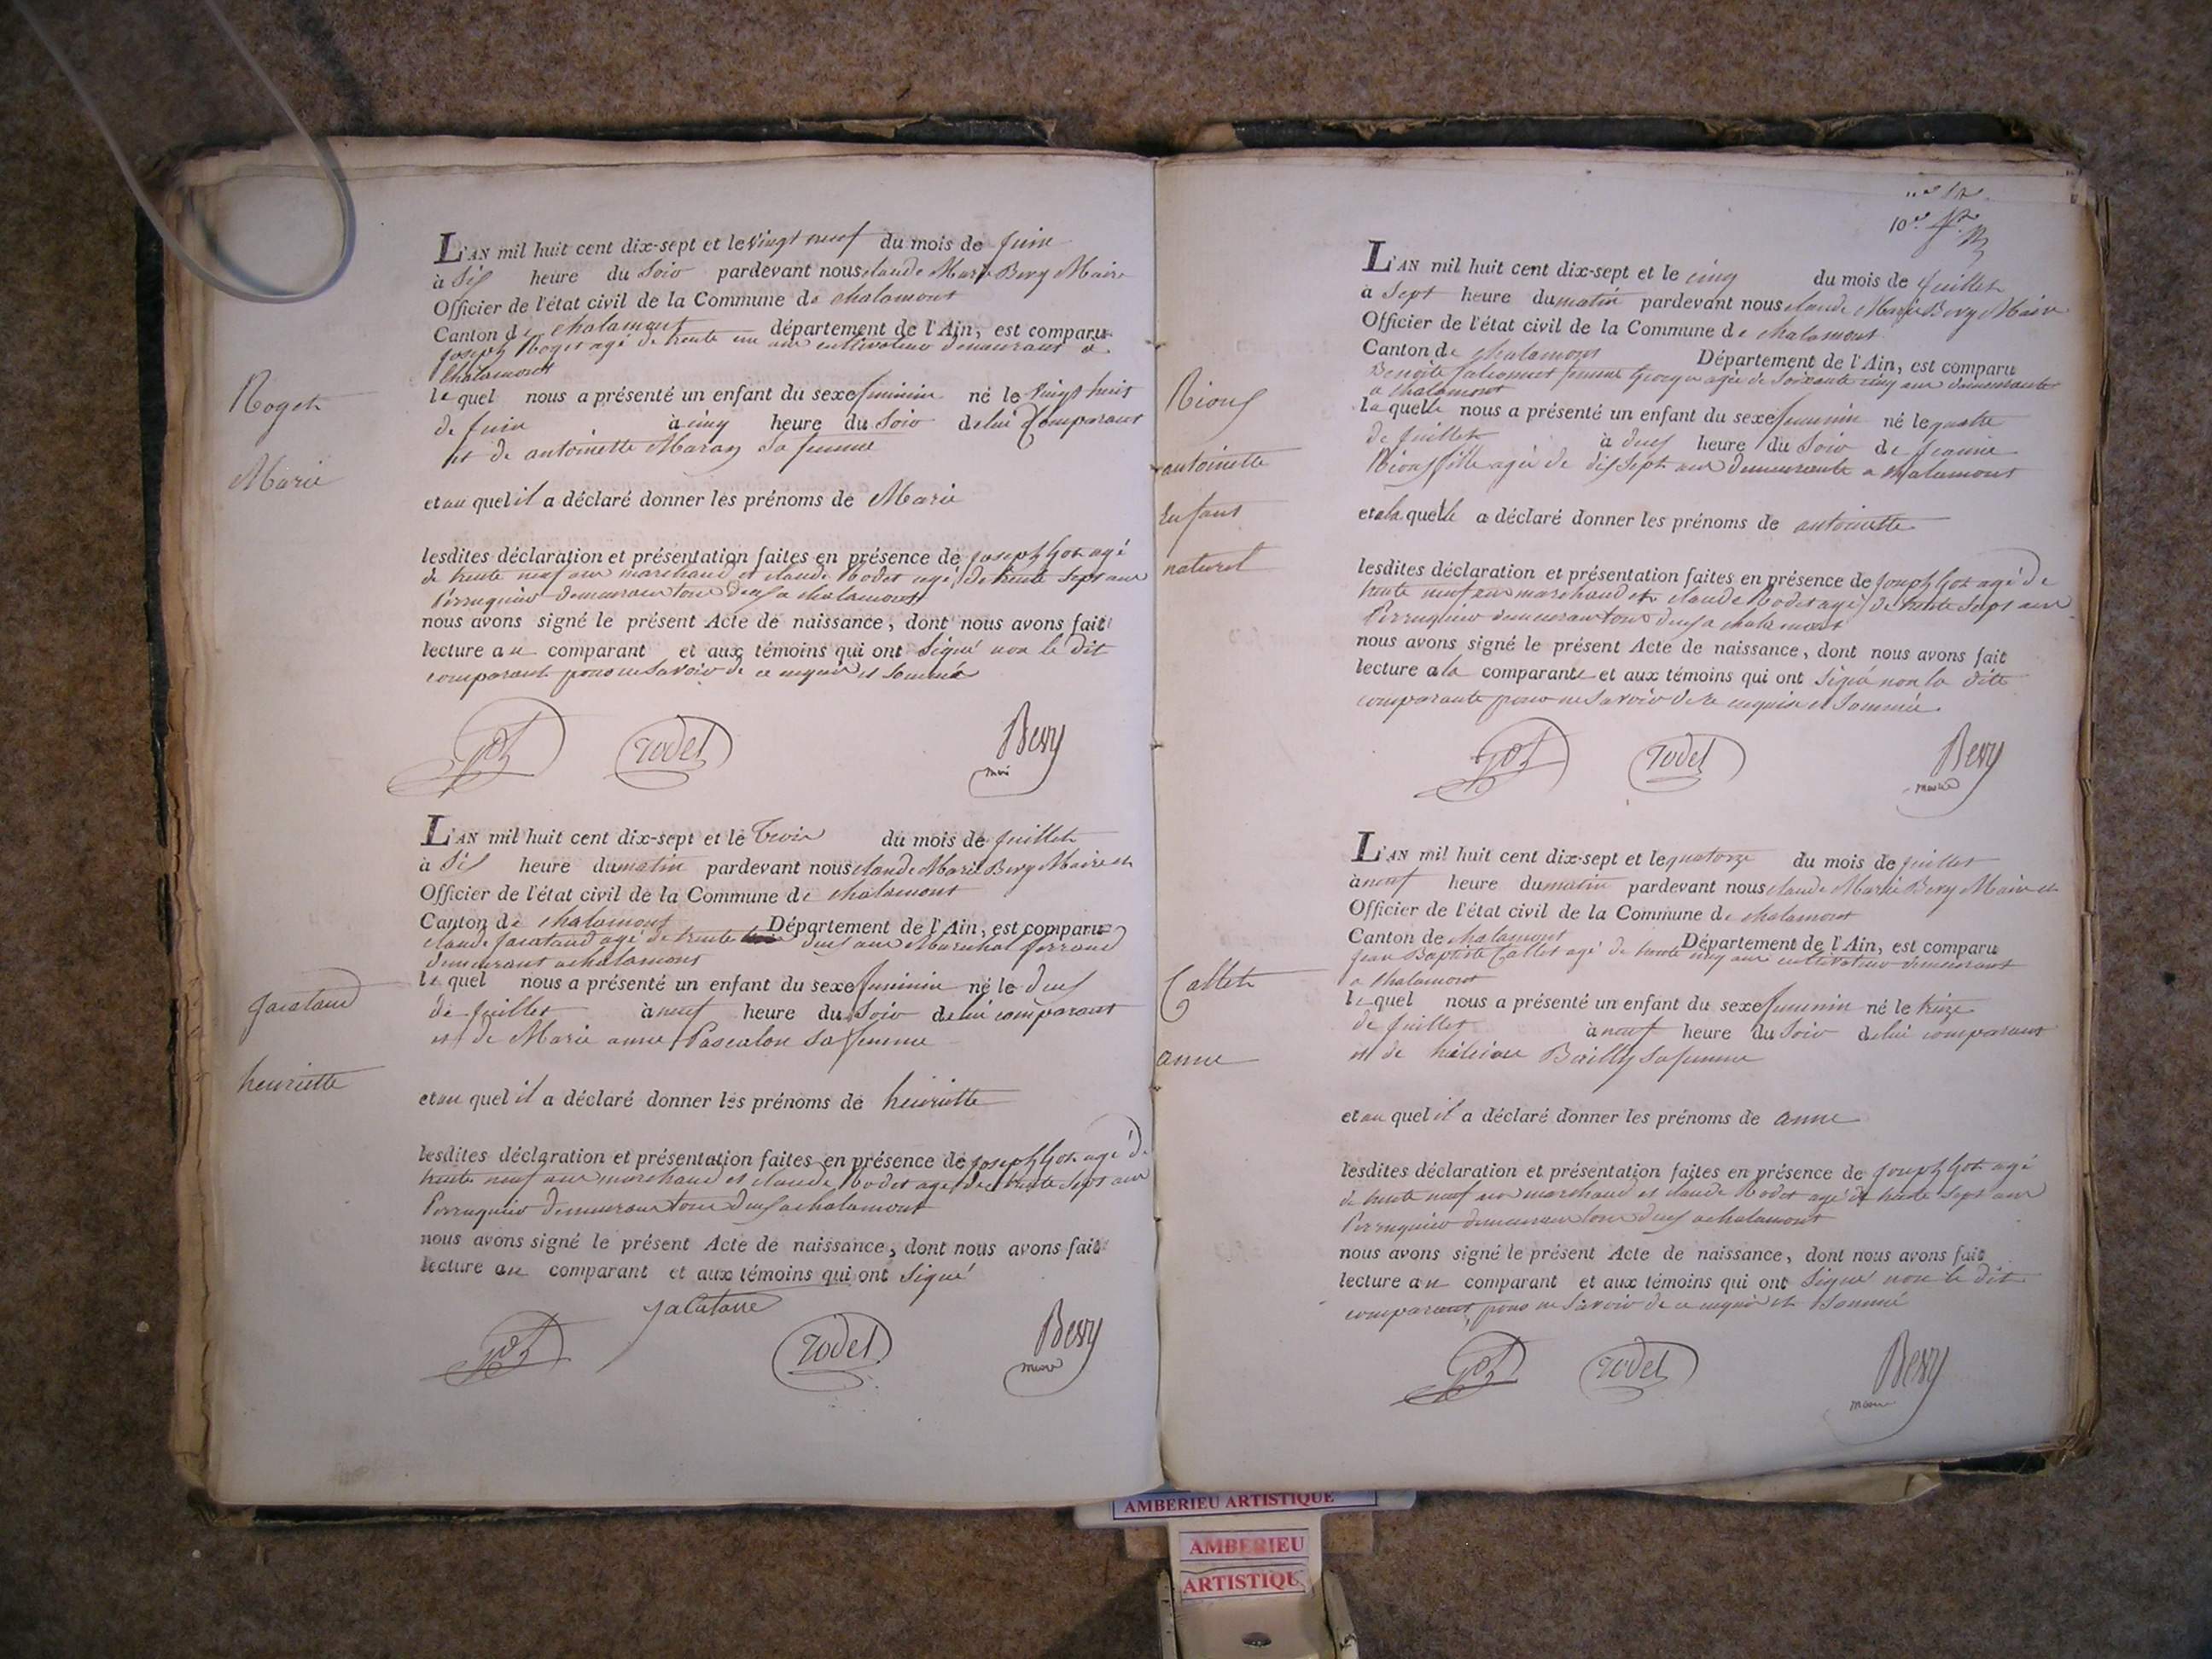 L'AN mil huit cent dix-sept et le vingt neuf du mois de juin
à six heure du soir pardevant nous claude Marie Bevy Maire
Officier de l'état civil de la Commune de chalamont
Canton de chalamont département de l'Ain, est comparu
joseph Roget agé de trente un ans cultivateur demeurant a
chalamont
Roget
lequel nous a présenté un enfant du sexe feminin né le vingt huit
de juin à cinq heure du soir de lui comparant
et de antoinette Maray sa femme
Marie
et au quel il a déclaré donner les prénoms de Marie
lesdites déclaration et présentation faites en présence de joseph Got agé
de trente neuf ans marchand et claude Rodet agé de trente sept ans
Perruquier demeurant tous deux a chalamont
nous avons signé le présent Acte de naissance, dont nous avons fait
lecture au comparant et aux témoins qui ont signé non le dit
comparant pour ne savoir de ce enquis et sommé
Got rodet Bevy
maire
L'AN mil huit cent dix-sept et le trois du mois de juillet
à six heure du matin pardevant nous claude Marie Bevy Maire et
Officier de l'état civil de la Commune de chalamont
Canton de chalamont Département de l'Ain, est comparu
claude jacataud agé de trente deux ans Marechal ferrand
demeurant a chalamont
jacataud
lequel nous a présenté un enfant du sexe feminin né le deux
de juillet à neuf heure du soir de lui comparant
et de Marie anne Pascalon sa femme
henriette
et au quel il a déclaré donner les prénoms de henriette
lesdites déclaration et présentation faites en présence de joseph Got agé de
trente neuf ans marchand et claude Rodet agé de trente sept ans
Perruquier demeurant tous deux a chalamont
nous avons signé le présent Acte de naissance, dont nous avons fait
lecture au comparant et aux témoins qui ont signé
Got rodet Bevy
maire
10e
L'AN mil huit cent dix-sept et le cinq du mois de juillet
à sept heure du matin pardevant nous claude Marie Bevy Maire
Officier de l'état civil de la Commune de chalamont
Canton de chalamont Département de l'Ain, est comparu
Benoite falconnet femme agée de soixante cinq ans demeurante
a chalamont
Rioux
laquelle nous a présenté un enfant du sexe feminin né le quatre
de juillet à deux heure du soir de jeanne
Rioux fille agée de dix sept ans demeurante a chalamont
antoinette
enfant
naturel
et ala quelle a déclaré donner les prénoms de antoinette
lesdites déclaration et présentation faites en présence de joseph Got agé de
trente neuf ans marchand et claude Rodet agé de trente sept ans
Perruquier demeurant tous deux a chalamont
nous avons signé le présent Acte de naissance, dont nous avons fait
lecture a la comparante et aux témoins qui ont signé non la dite
comparante pour ne savoir de ce enquise et sommée
Got rodet Bevy
maire
L'AN mil huit cent dix-sept et le quatorze du mois de juillet
à neuf heure du matin pardevant nous claude Marie Bevy Maire et
Officier de l'état civil de la Commune de chalamont
Canton de chalamont Département de l'Ain, est comparu
jean Baptiste Callet agé de trente cinq ans cultivateur demeurant
a chalamont
Callet
lequel nous a présenté un enfant du sexe feminin né le treize
de juillet à neuf heure du soir de lui comparant
et de Bailly sa femme
anne
et au quel il a déclaré donner les prénoms de anne
lesdites déclaration et présentation faites en présence de joseph Got agé
de trente neuf ans marchand et claude Rodet agé de trente sept ans
Perruquier demeurant tous deux a chalamont
nous avons signé le présent Acte de naissance, dont nous avons fait
lecture au comparant et aux témoins qui ont signé non le dit
comparant pour ne savoir de ce enquis et sommé
Got rodet Bevy
maire
AMBERIEU ARTISTIQUE
AMBERIEU
ARTISTIQUE